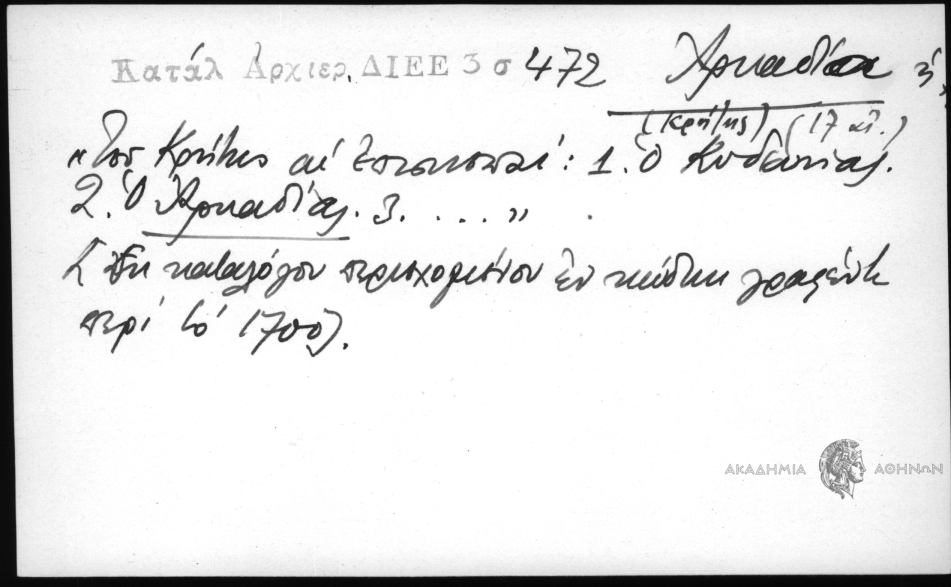 Κατάλ Ἀρχιερ. ΔΙΕΕ 3 σ 472 Ἀρκαδία ἡ,
(Κρήτης) (17 αἰ.)
"Του Κρήτης αἱ ἐπισκοπαί: 1. Ὁ Κυδωνίας.
2. Ὁ Ἀρκαδίας. 3. . . . . "
[Ἐκ καταλόγου περιεχομένου ἐν κώδικι γραφέντι
περί τό 1700].
ΑΚΑΔΗΜΙΑ ΑΘΗΝΩΝ